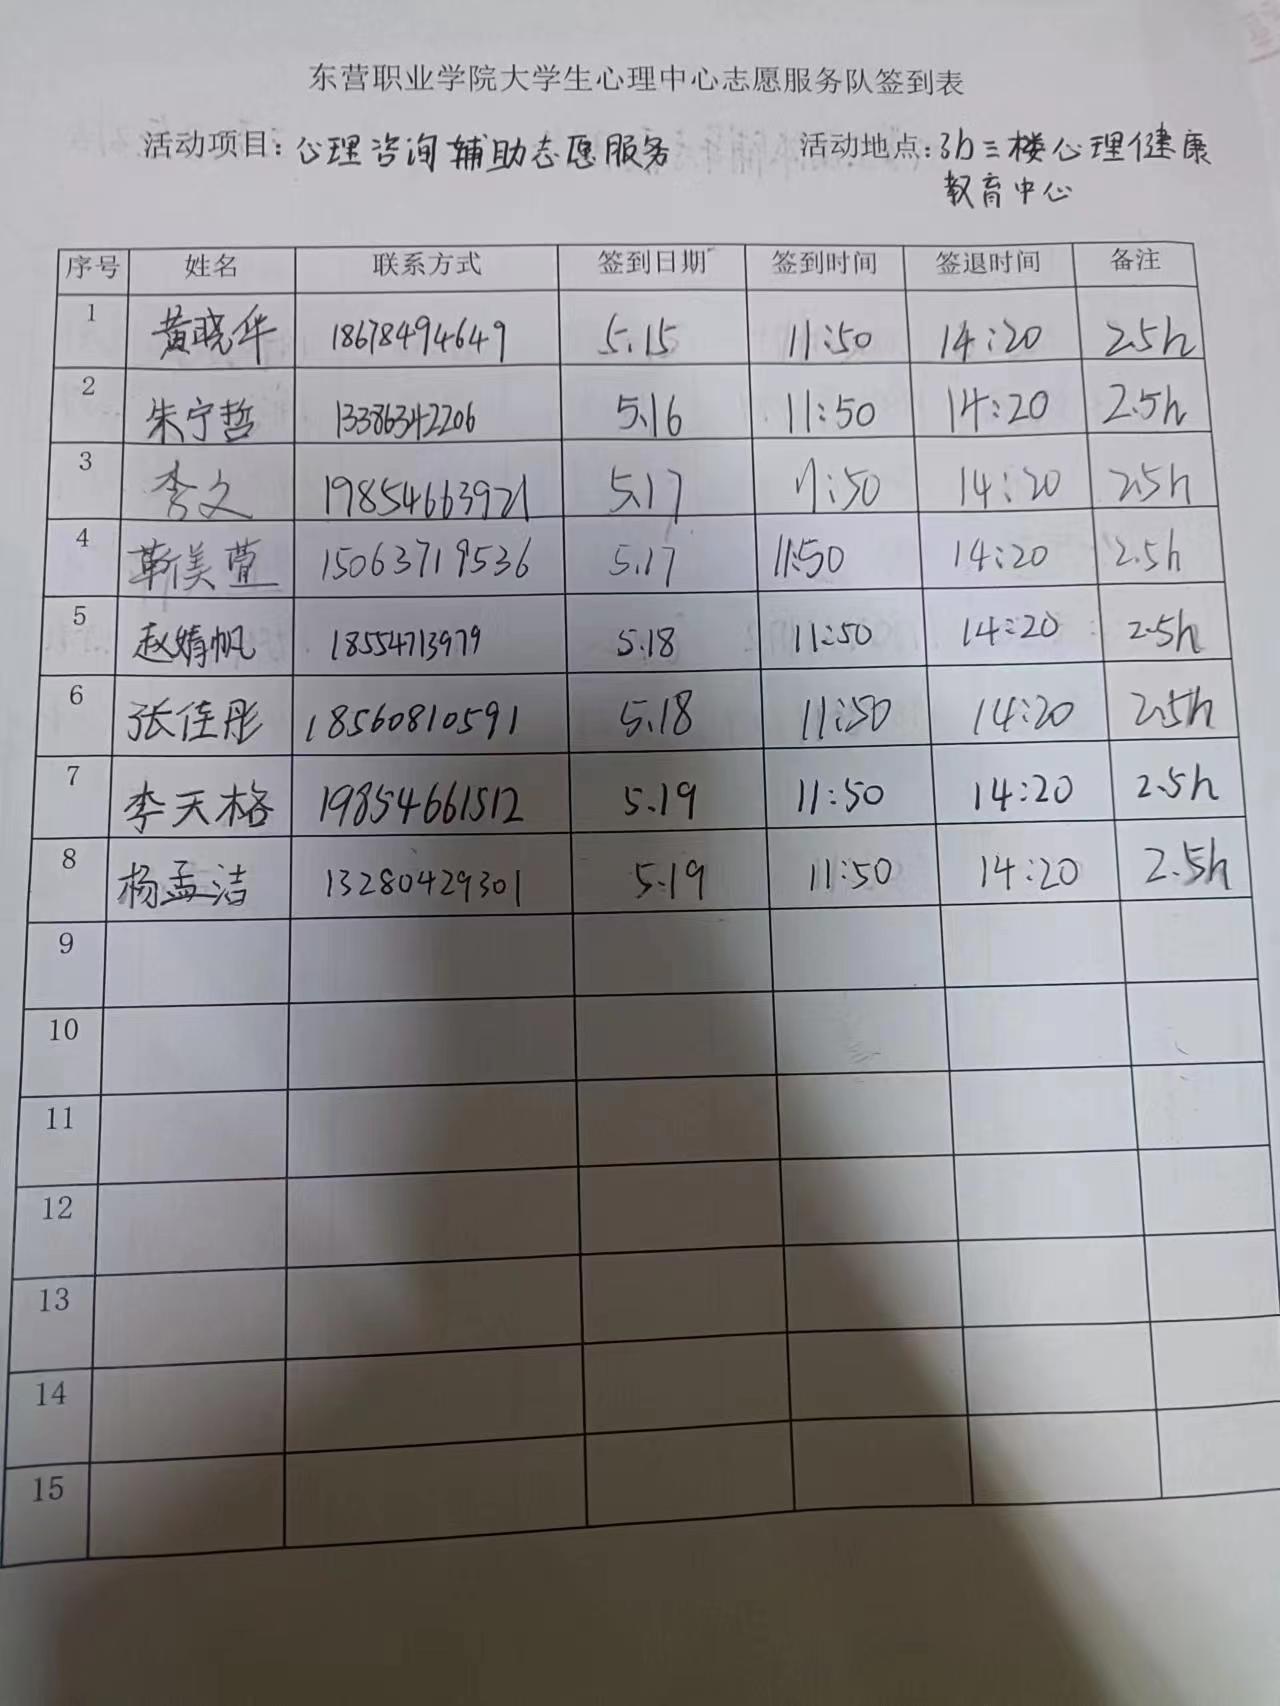 东营职业学院大学生心理中心志愿服务队签到表
活动项目：心理咨询辅助志愿服务 活动地点：3b三楼心理健康
教育中心
序号 姓名 联系方式 签到日期 签到时间 签退时间 备注
1 黄晓华 18678494649 5.15 11:50 14:20 2.5h
2 朱宁哲 13386342206 5.16 11:50 14:20 2.5h
3 李文 19854663921 5.17 11:50 14:20 2.5h
4 靳美萱 15063719536 5.17 11:50 14:20 2.5h
5 赵婧帆 18554713979 5.18 11:50 14:20 2.5h
6 张佳彤 18560810591 5.18 11:50 14:20 2.5h
7 李天格 19854661512 5.19 11:50 14:20 2.5h
8 杨孟洁 13280429301 5.19 11:50 14:20 2.5h
9
10
11
12
13
14
15